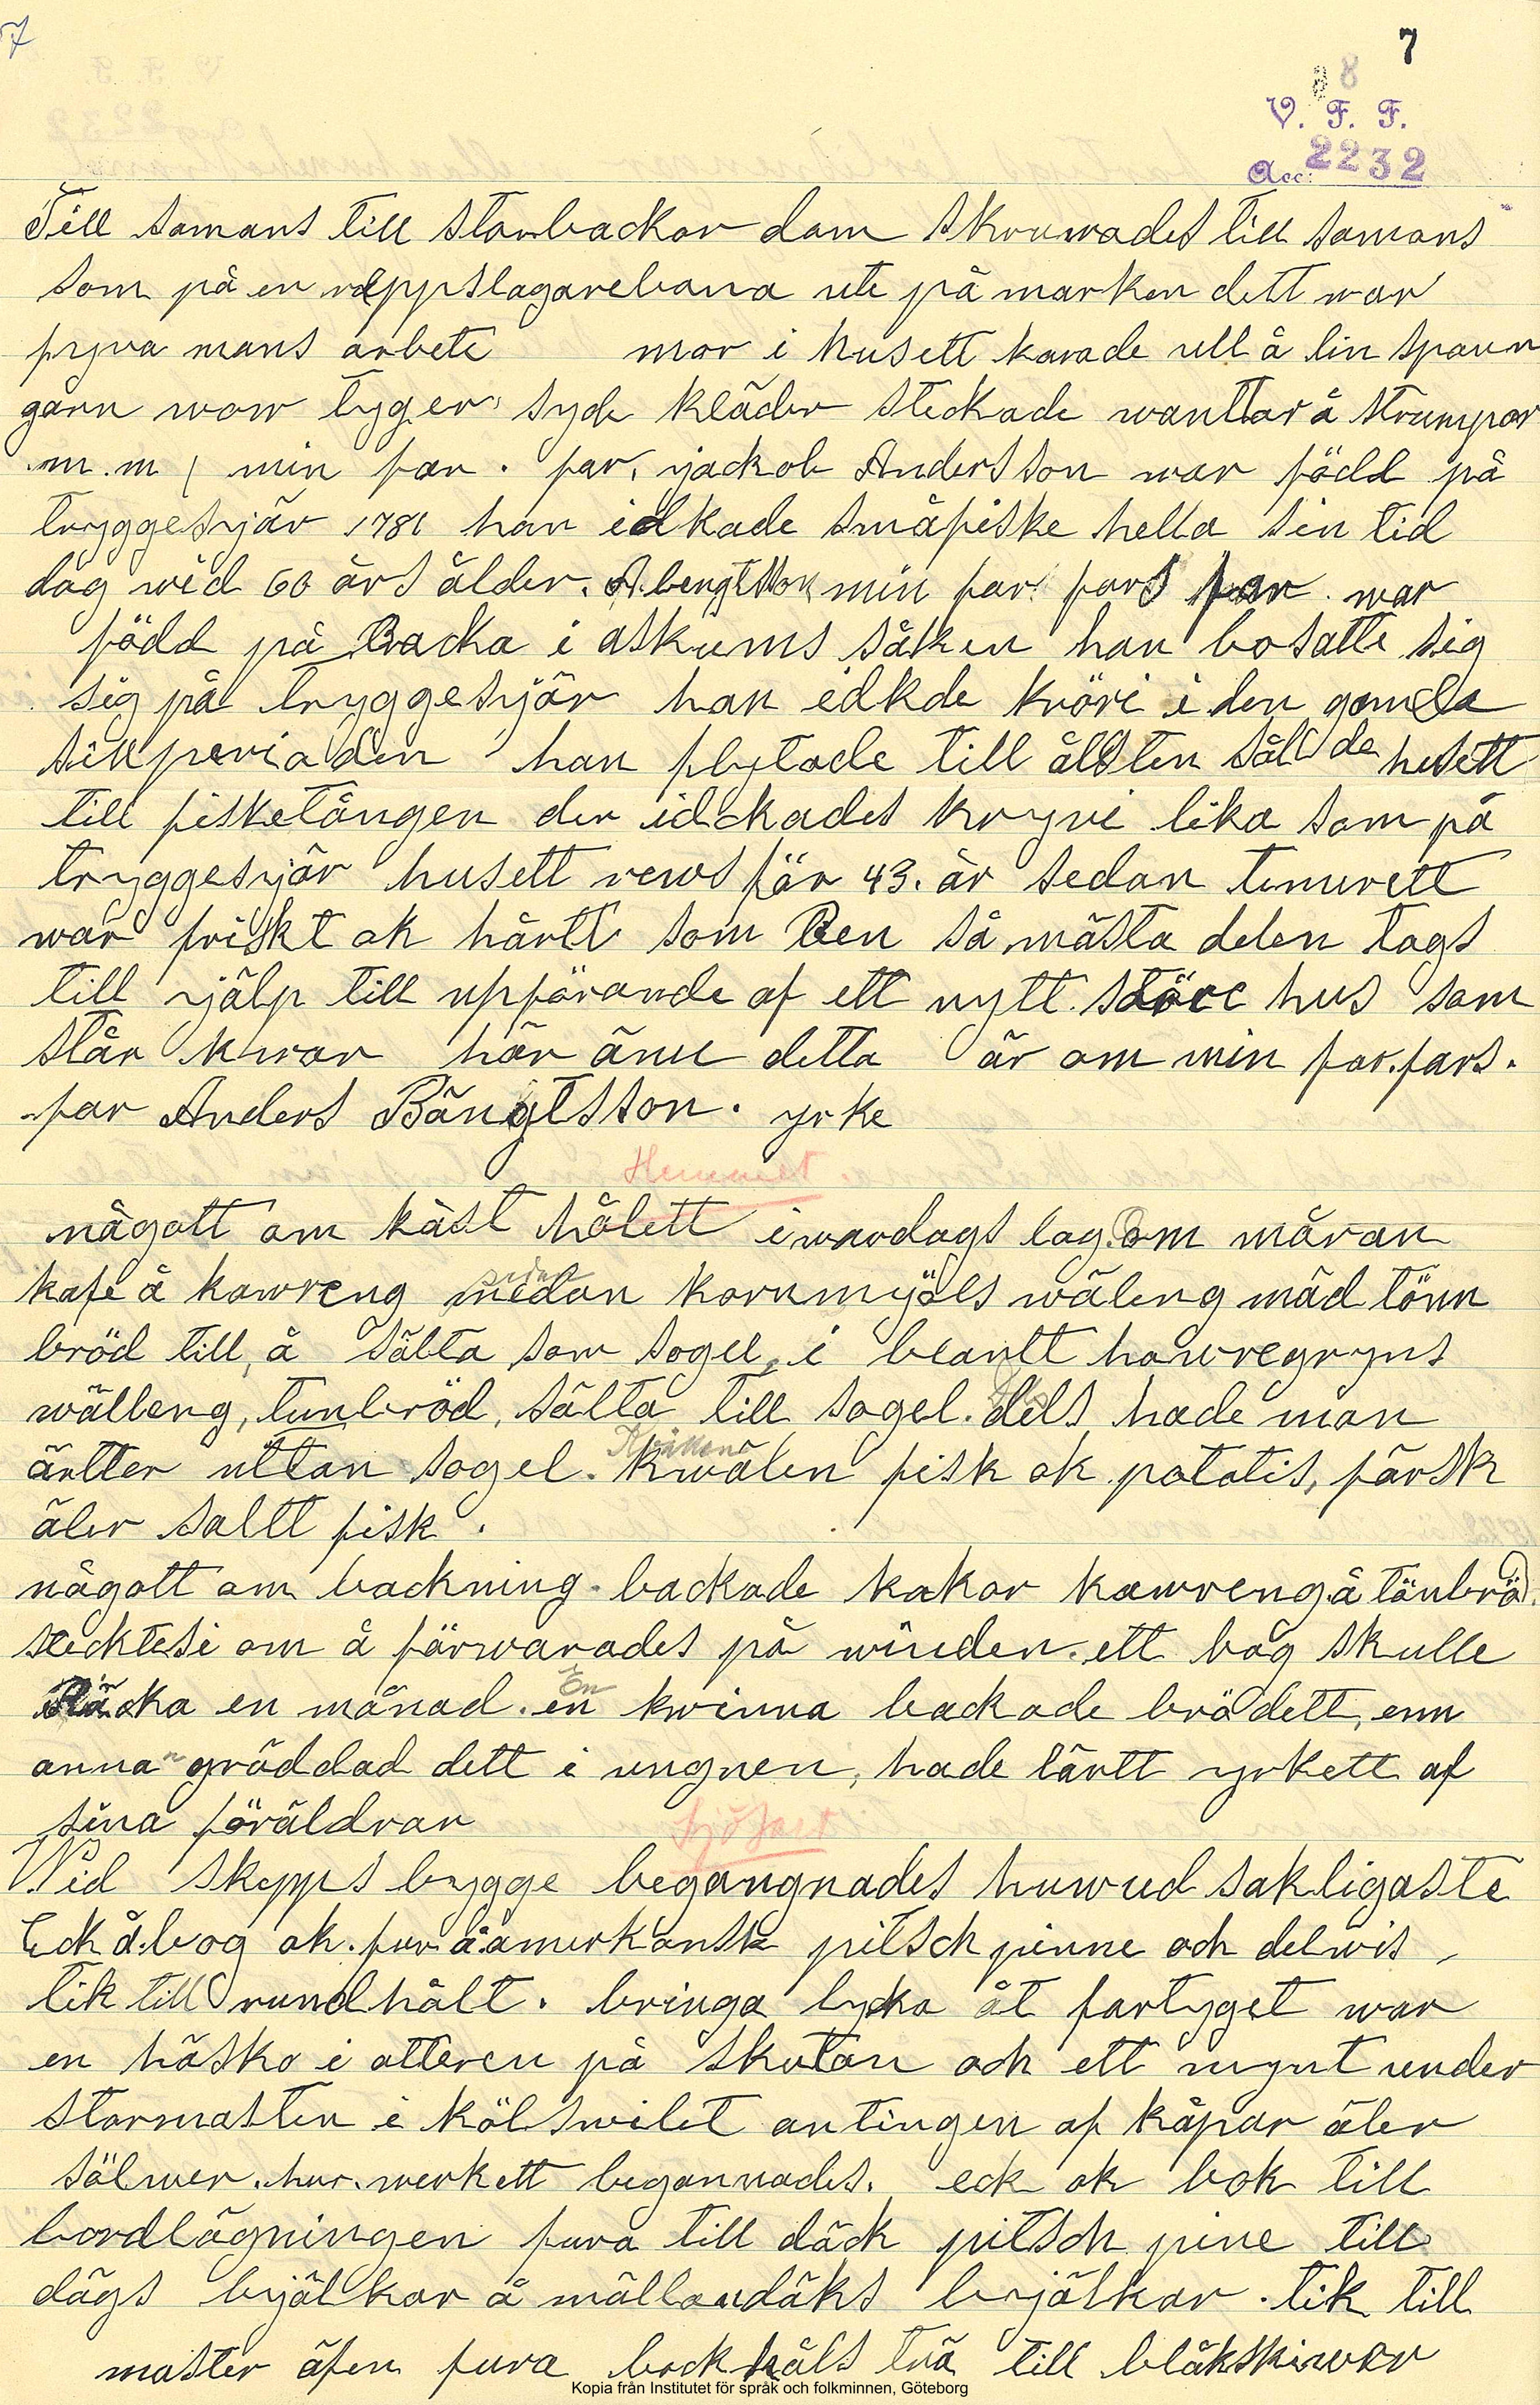 57
7
8
V. F. F.
Acc: 2232
Till samans till storbackor dom skruwades till samans
som på en reppslagarebana ute på marken dett war
fyra mans arbete mor i husett karade ull å lin spann
garn waw tyger, syde kläder steckade wanttar å strumpor
m. m ( min far. far. jackob Andersson war född på
tryggesjär 1781 han idkade småfiske hella sin tid
dåg wid 60 års ålder. A. bengtsson min far fars far war
född på Backa i askums såken han bosatte sig
sig på tryggesjär han idkde kröri i den gamla
sillperioden han flytade till ålsten sållde husett
till fisketången der idckades kryri lika som på
tryggesjär husett rews för 43. år sedan temurett
war friskt ok hårtt som Ben så mästa delen togs
till jälp till uppförande af ett nytt större hus som
står kwar här änu detta är om min far.fars.
far Anders Bängtsson. yrke
Hemmet.
någott om kåst hålett i wardags lag. om måran
kafe å kawreng sedan medan kornmyöls wäleng mäd tönn
bröd till, å sålta som sogel, i beantt hawregryns
wälleng, tunbröd, sålta till sogel. dels hade man
ärtter uttan sogel. Kwälen fisk ok potatis, färsk
äler saltt fisk.
någott om backning. backade kakor kawreng å tönbrö
stecktesi om å förwarades på winden. ett bag skulle
Räcka en månad. En en kwinna backade brödett, enn
annan gräddad dett i ungnen, hade lärtt yrkett af
sina föräldrar
Sjöfart
Wid skepps bygge begangnades huwud sakligaste
Eck å.bog ok. fur å amerkansk pitsch pinne och delwis,
tik till rundhålt. bringa lycka åt fartyget war
en häsko i atteren på skutan och ett mynt under
stormasten i kölswilet antingen af kåpar äler
sölwer. hur. werkett begannades. eck ok bok till
bordlägningen fura till däck pitsch pine till
dägs bjälkar å mällandäks bjälkar. tik till
master äfen fura bockhåls trä till bläkskiwor
Kopia från Institutet för språk och folkminnen, Göteborg